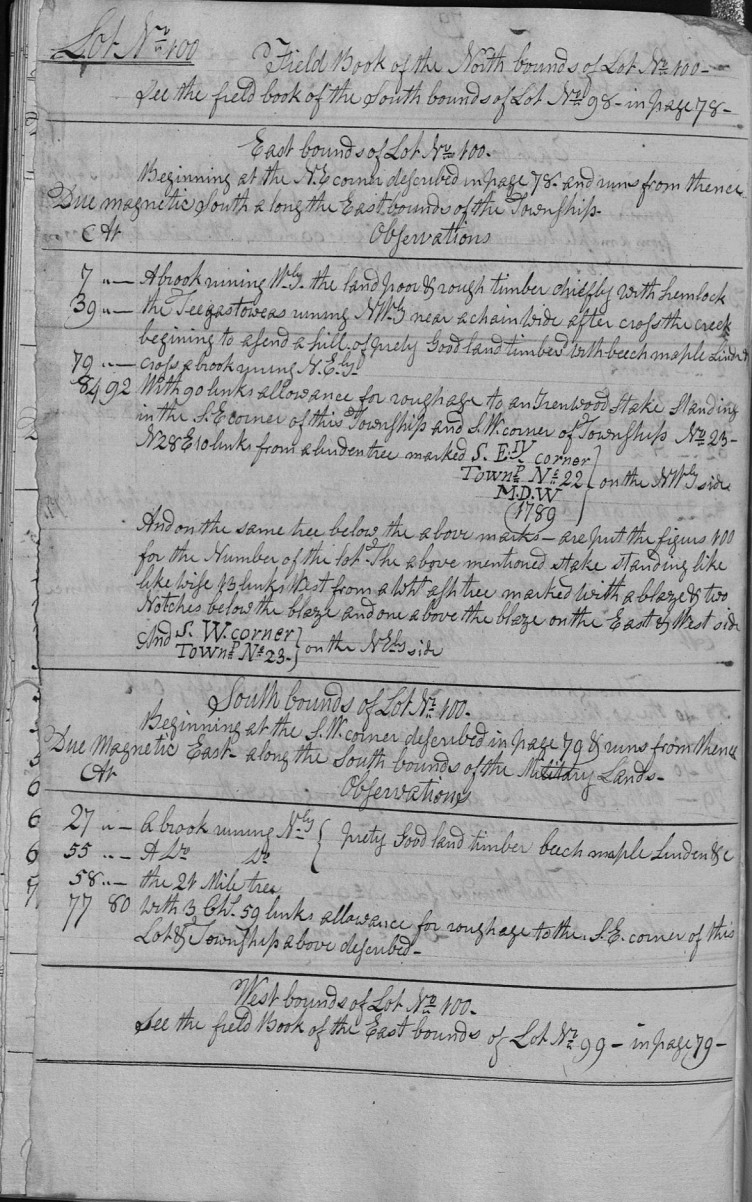 Lot Nr. 100
Field Book of the North bounds of Lot Nr. 100 -
See the field book of the South bounds of Lot Nr. 98 - in page 78 -
East bounds of Lot Nr. 100.
Beginning at the N.E corner described in page 78 - and runs from thence
Due magnetic South along the East bounds of the Township -
At Observations
7 " — A brook runing Wly. the land poor & rough timber chiefly with hemlock
39 " — the Teegastoweas runing NWly near a chain wide after cross the creek
begining to asend a hill, of prety Good land timber with beech maple Linde &
79 " — cross a brook runing N.Ely -
84 92 With 90 links allowance for roughage to an Irenwood stake Standing
in the S.E corner of this Township and S.W. corner of Township Nr. 23 -
N28E 10 links from a linden tree marked S. Ely corner
Townp. Nr. 22 } on the NWly side
M.D.W
1789
And on the same tree below the above marks - are put the figurs 100
for the Number of the lot The above mentioned stake standing like
like wise 13 links West from a Wht ash tree marked with a blaze & two
Notches below the blaze and one above the blaze on the East & West side
And S. W. corner
Townp. Nr. 23. } on the NEly side
South bounds of Lot Nr. 100.
Beginning at the S.W corner described in page 79 & runs from thence
Due Magnetic East - along the South bounds of the Military Lands -
At Observations
27 " — A brook runing Nly { prety Good land timber beech maple Linden &c
55 " — A Do Do
58 " — the 21 Mile tree
77 80 with 3 Chs. 59 links allowance for roughage to the S.E. corner of this
Lot & Township above described -
West bounds of Lot Nr. 100.
See the field Book of the East bounds of Lot Nr. 99 - in page 79 -